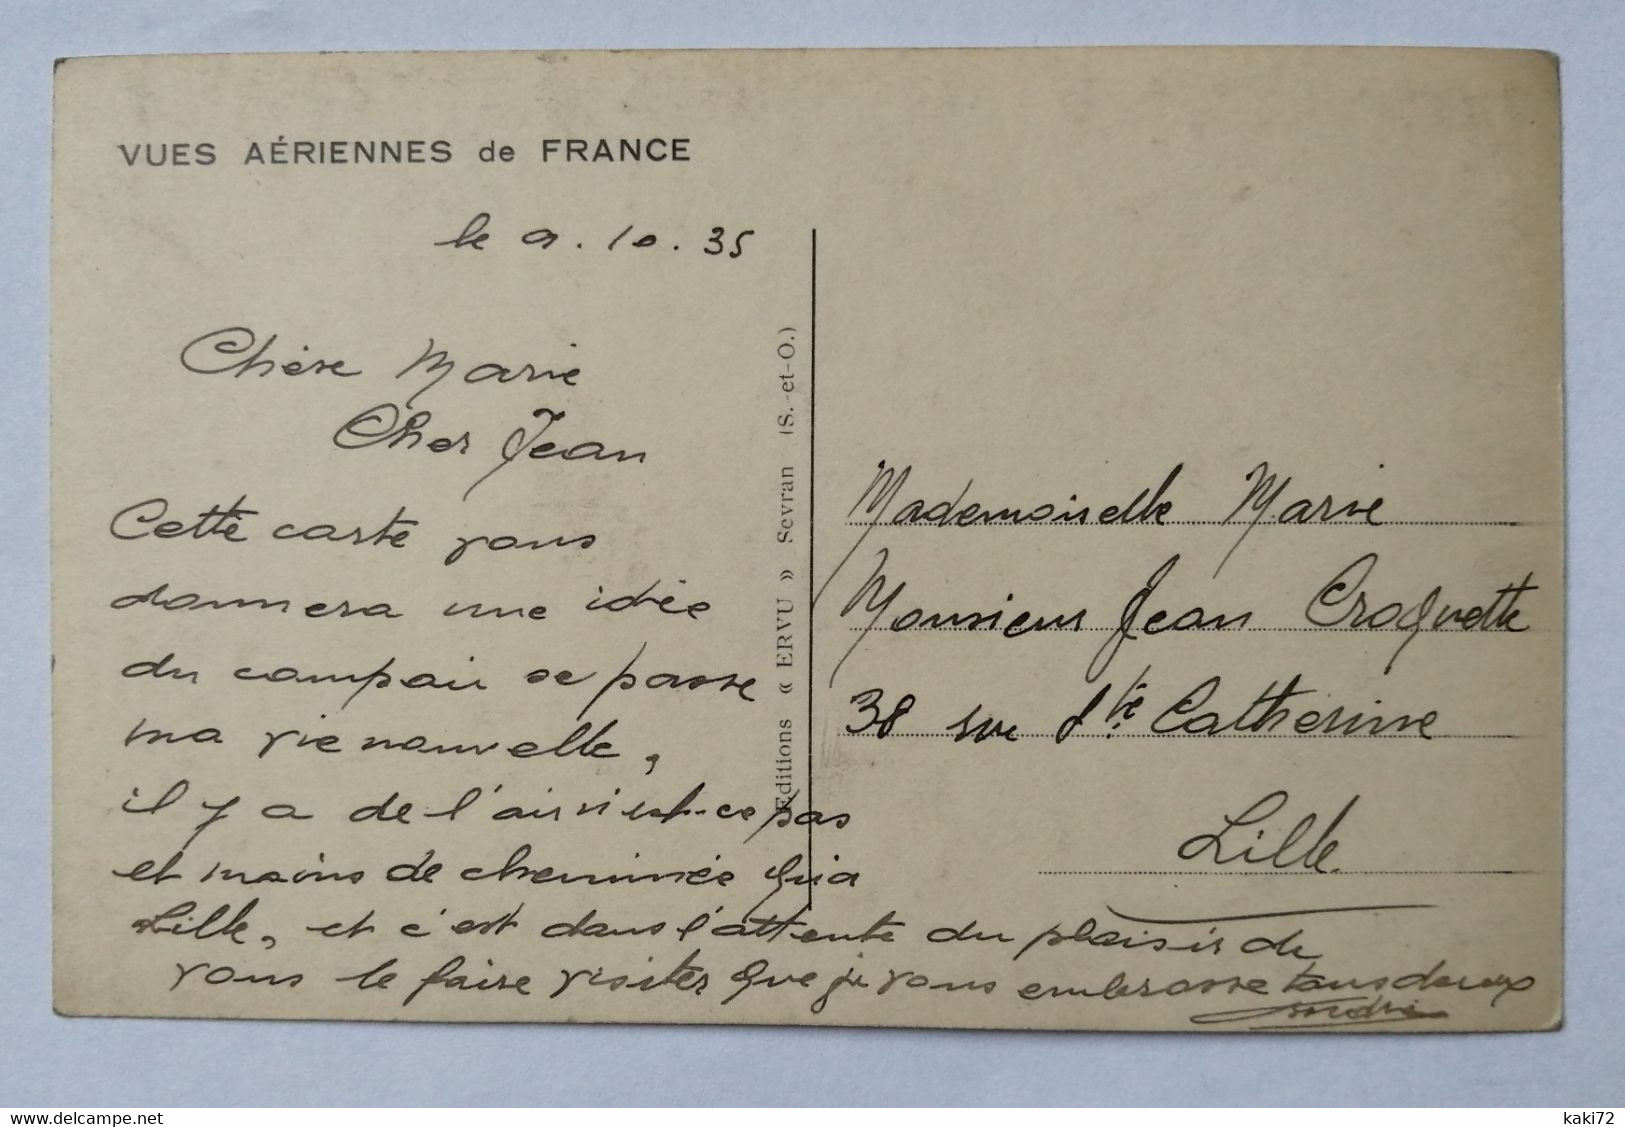 VUES AÉRIENNES de FRANCE
le 9.10.35
Chère Marie
Cher Jean
Cette carte vous
donnera une idée
du camp où se passe
ma vie nouvelle,
il y a de l'air n'est-ce pas
et moins de cheminée qu'a
Lille, et c'est dans l'attente du plaisir de
vous le faire visiter que je vous embrasse tous deux
André
Editions « ERVU » Sevran (S.-et-O.)
Mademoiselle Marie
Monsieur Jean Croquette
38 rue Ste Catherine
Lille.
https://www.delcampe.net
kaki72